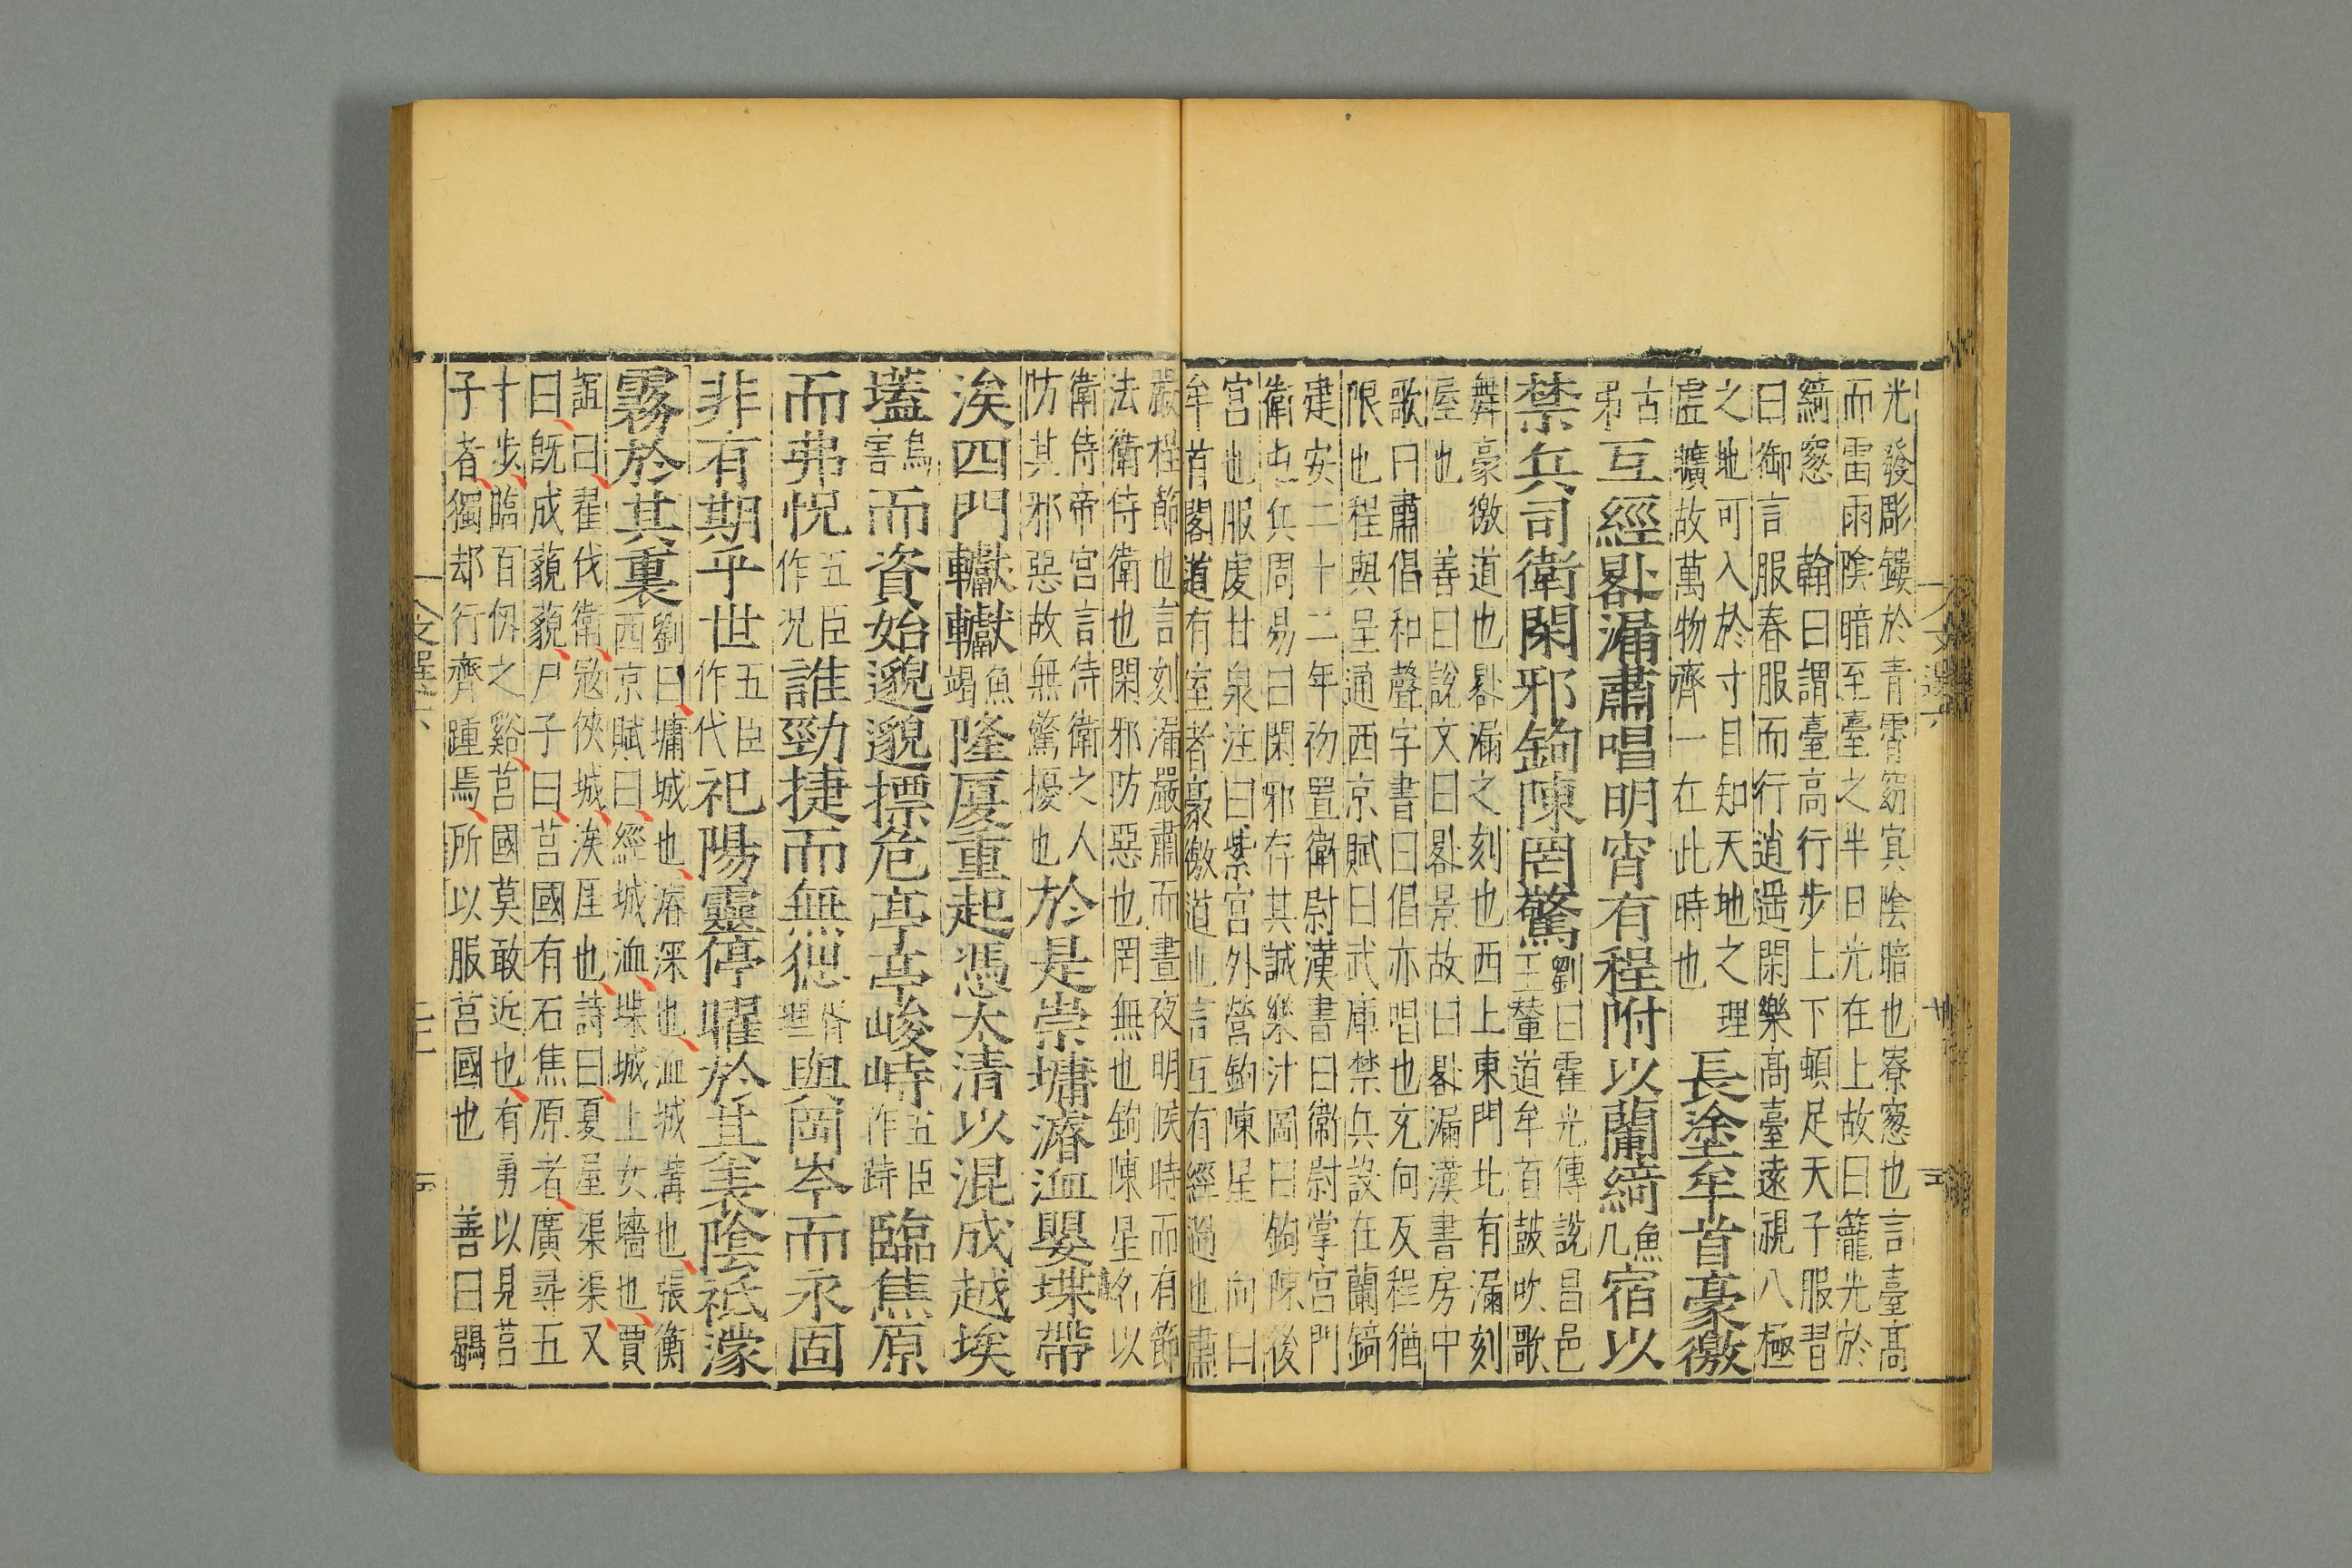 光發彫鏤於青霄窈㝠陰暗也寮窓也言臺髙
而雷雨隂暗至臺之半日光在上故曰籠光於
綺窓　翰曰謂臺高行步上下頓足天子服習
曰御言服春服而行逍遥閑樂髙臺遠視八極
之地可入於寸目知天地之理
虛曠故萬物齊一在此時也
長塗牟首豪徼
古
弔
互經晷漏肅唱明宵有程附以蘭綺
魚
几
宿以
禁兵司衛閑邪鉤陳罔驚
劉曰霍光傳說昌邑
王輦道牟首鼓吹歌
舞豪徼道也晷漏之刻也西上東門北有漏刻
屋也　善曰說文曰晷景故曰晷漏漢書房中
歌曰肅倡和聲字書曰倡亦唱也充向反程猶
限也程與呈通西京賦曰武庫禁兵設在蘭錡
建安二十二年初置衛尉漢書曰衛尉掌宮門
衛屯兵周易曰閑邪存其誠樂汁圖曰鉤陳後
宮也服虔甘泉注曰紫宮外營鉤陳星　向曰
牟首閣道有室者豪徼道也言互有經過也肅
嚴程節也言刻漏嚴肅而晝夜明候時而有節
法衛侍衛也閑邪防惡也罔無也鉤陳星名以
衛侍帝宮言侍衛之人
防其邪惡故無驚擾也
於是崇墉濬洫嬰堞帶
涘四門轞轞
魚
竭
隆厦重起憑太清以混成越埃
壒
烏
害
而資始邈邈摽危亭亭峻峙
五臣
作跱
臨焦原
而弗怳
五臣
作况
誰勁捷而無𤟧
胥
理
與岡岑而永固
非有期乎世
五臣
作代
祀陽靈停曜於其表陰祗濛
霧於其裏
劉曰墉城也濬深也洫城溝也張衡
西京賦曰經城洫堞城上女墻也賈
誼曰翟伐衛寇俠城涘厓也詩曰夏屋渠渠又
曰既成藐藐尸子曰莒國有石焦原者廣尋五
十步臨百仞之谿莒國莫敢近也有勇以見莒
子者獨却行齊踵焉所以服莒國也　善曰鸓